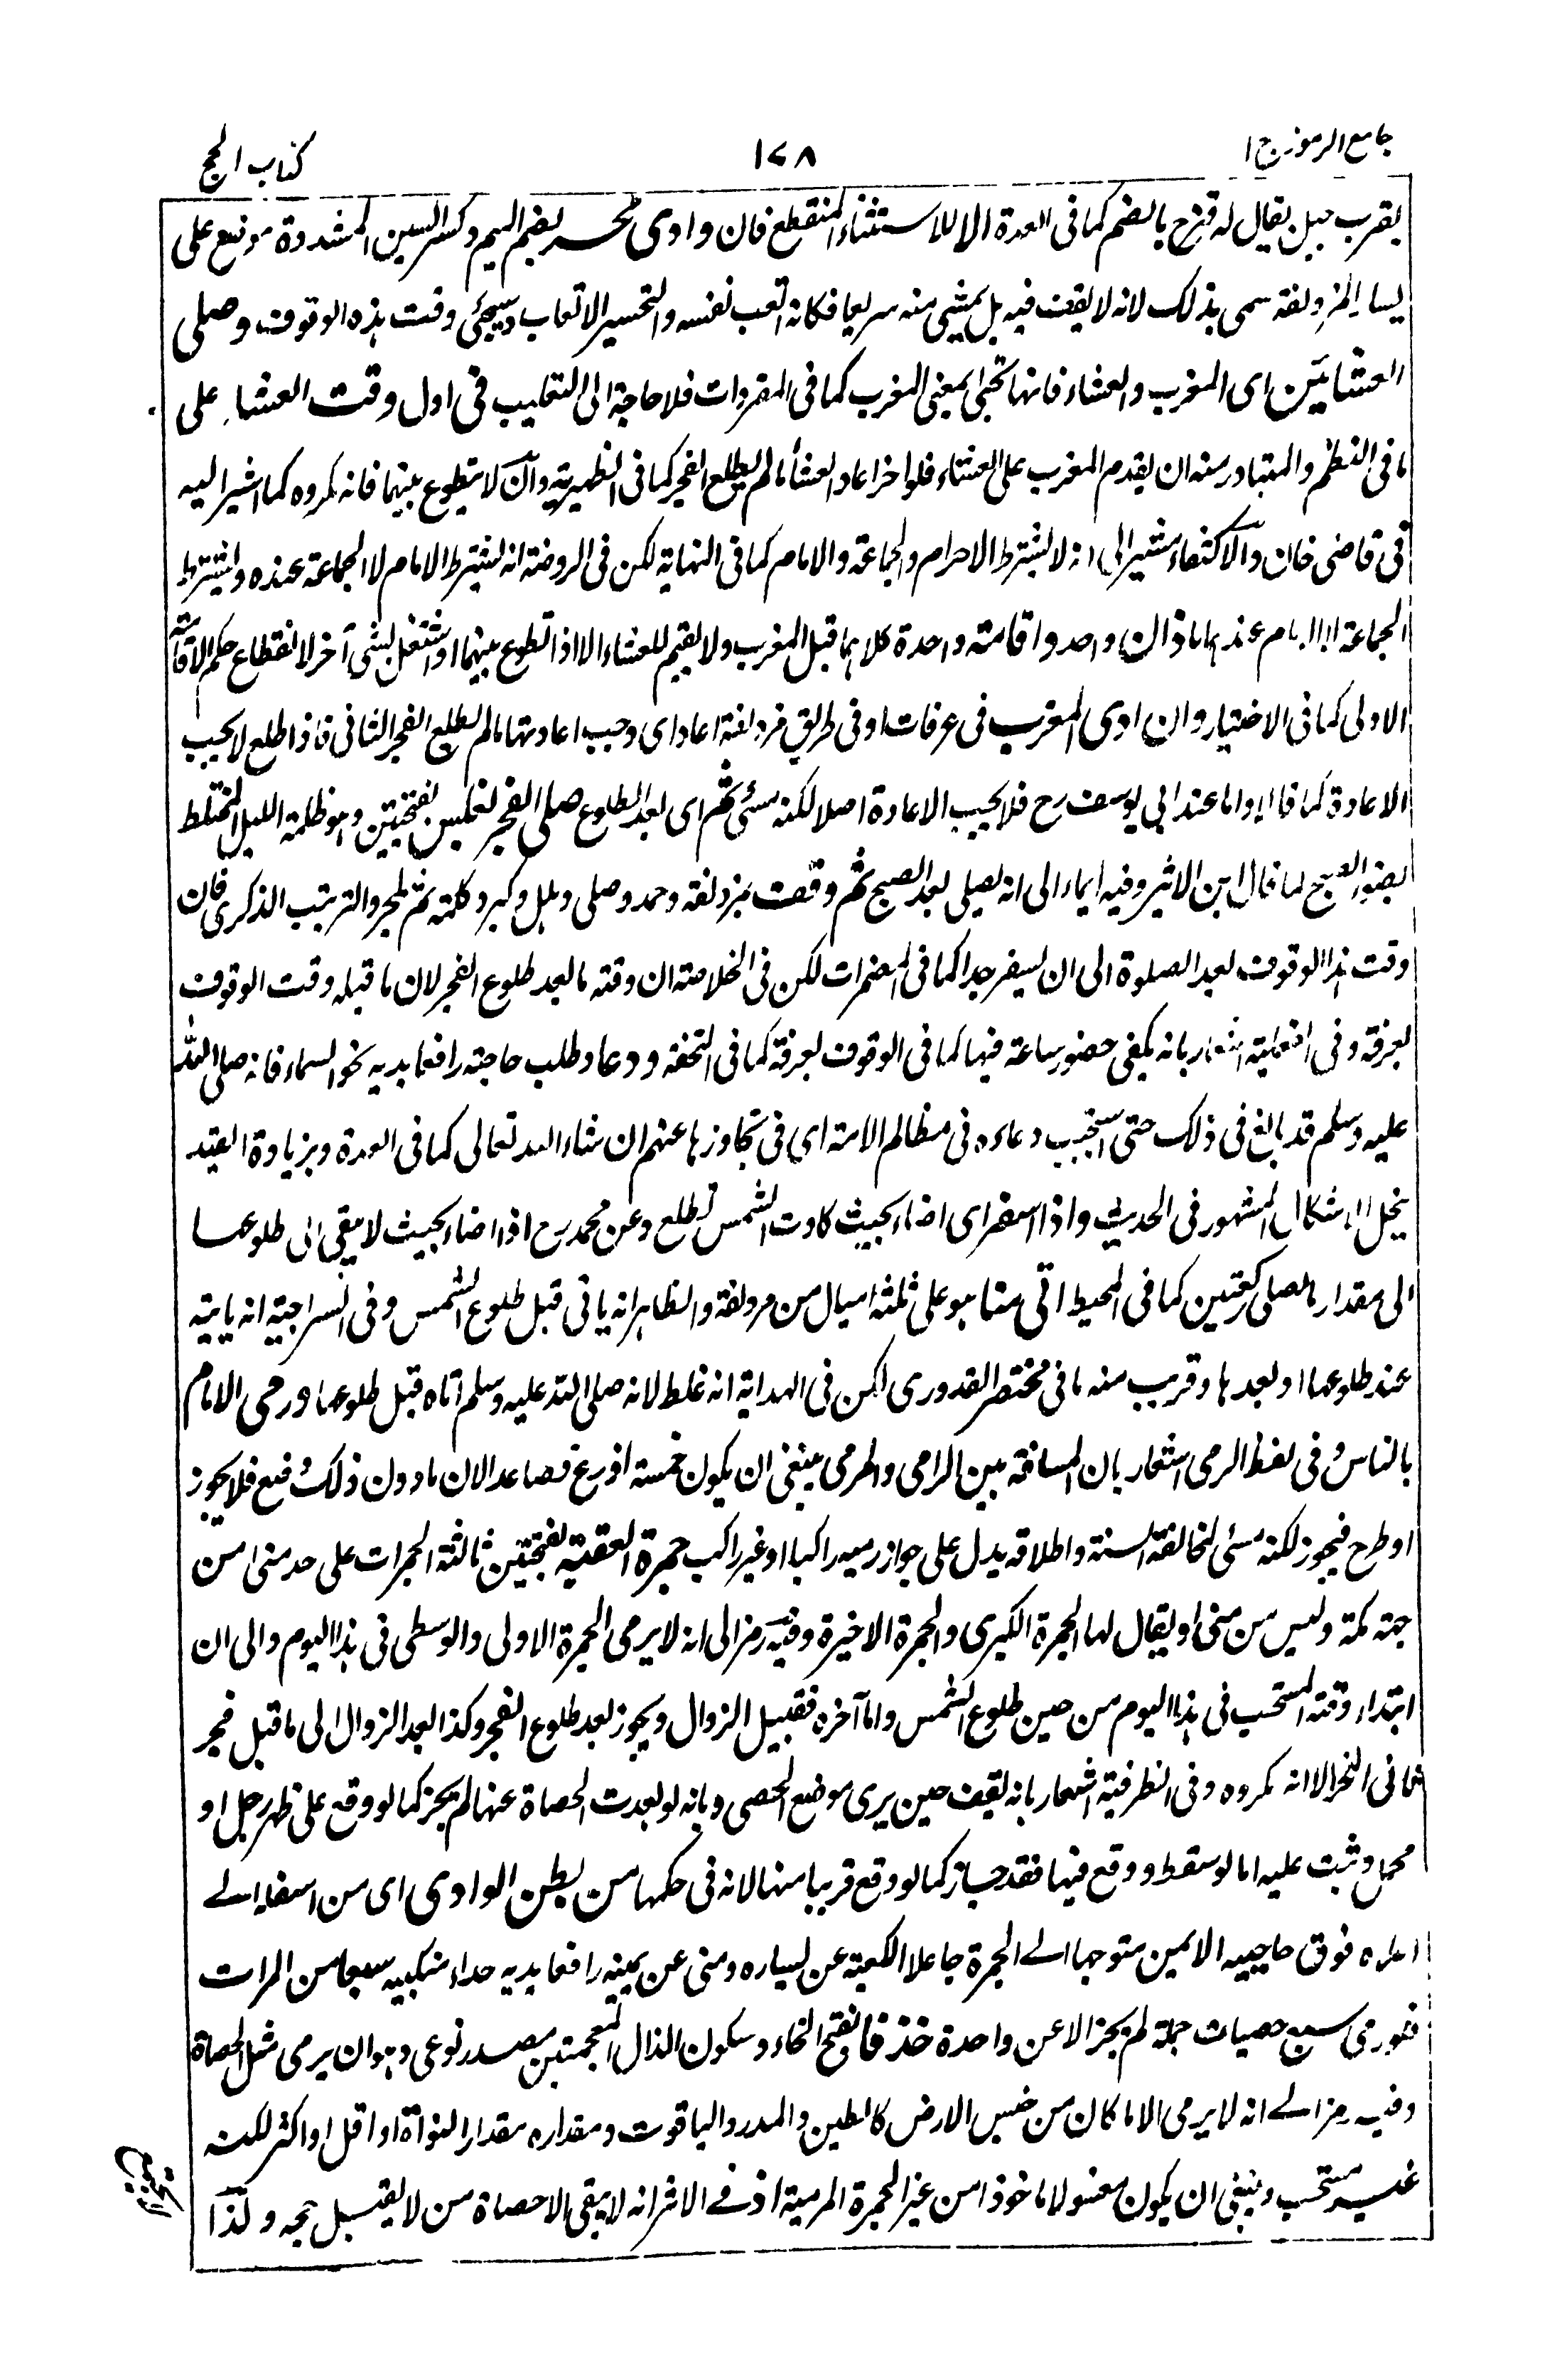 جامع الرموز ج ١
١٧٨
كتاب الحج
بقرب جبل يقال له قزح بالضم كما فى العدة الا للاستثناء المنقطع فان وادى محسر بضم الميم وكسر السين المشددة موضع على
يسار المزدلفة سمى بذلك لانه لا يقف فيه بل يمشى منه سريعا فكانه اتعب نفسه والتحسير الاتعاب وسيجئ وقت هذه الوقوف وصلى
العشائين اى المغرب والعشاء فانها تجئ بمعنى المغرب كما فى المفردات فلا حاجة الى التغليب فى اول وقت العشاء على
ما فى النظم والمتبادر منه ان يقدم المغرب على العشاء فلو اخر اعاد العشاء ما لم يطلع الفجر كما فى الظهيرية وان لا يتطوع بينهما فانه مكروه كما اشير اليه
فى قاضى خان والاكتفاء مشير الى انه لا يشترط الاحرام والجماعة والامام كما فى النهاية لكن فى الروضة انه يشترط الامام لا الجماعة عنده ويشترط
الجماعة لا الامام عندهما باذان واحد واقامة واحدة كلاهما قبل المغرب ولا يقيم للعشاء الا اذا تطوع بينهما او اشتغل بشئ آخر لانقطاع حكم الاقامة
الاولى كما فى الاختيار وان ادى المغرب فى عرفات او فى طريق مزدلفة اعاد اى وجب اعادتها ما لم يطلع الفجر الثانى فاذا طلع لا يجب
الاعادة كما قالا واما عند ابى يوسف رح فلا يجب الاعادة اصلا لكنه مسئ ثم اى بعد الطلوع صلى الفجر بغلس بفتحتين وهو ظلمة الليل المختلط
بضوء الصبح لما قال ابن الاثير وفيه ايماء الى انه يصلى بعد الصبح ثم وقف بمزدلفة وحمد وصلى وهلل وكبر وكلمة ثم لمجرد الترتيب الذكرى فان
وقت هذا الوقوف بعد الصلوة الى ان يسفر جدا كما فى المضمرات لكن فى الخلاصة ان وقته ما بعد طلوع الفجر لان ما قبله وقت الوقوف
بعرفة وفى الفعلية اشعار بانه يكفى حضور ساعة فيها كما فى الوقوف بعرفة كما فى التحفة ودعا وطلب حاجته رافعا يديه نحو السماء فانه صلى الله
عليه وسلم قد بالغ فى ذلك حتى استجيب دعاءه فى مظالم الامة اى فى تجاوزها عنهم ان شاء الله تعالى كما فى العدة وبزيادة القيد
ينحل الاشكال المشهور فى الحديث واذا اسفر اى اضاء بحيث كادت الشمس تطلع وعن محمد رح اذا اضاء بحيث لا يبقى الى طلوعها
الى مقدار ما يصلى ركعتين كما فى المحيط اتى منا هو على ثلثة اميال من مزدلفة والظاهر انه ياتى قبل طلوع الشمس وفى السراجية انه ياتيه
عند طلوعها او بعدها وقريب منه ما فى مختصر القدورى لكن فى الهداية انه غلط لانه صلى الله عليه وسلم اتاه قبل طلوعها ورمى الامام
بالناس وفى لفظ الرمى اشعار بان المسافة بين الرامى والمرمى ينبغى ان يكون خمسة اذرع فصاعدا لان ما دون ذلك وضع فلا يجوز
او طرح فيجوز لكنه مسئ لمخالفة السنة واطلاقه يدل على جواز رميه راكبا او غير راكب جمرة العقبة بفتحتين ثالثة الجمرات على حد منى من
جهة مكة وليس من منى او يقال لها الجمرة الكبرى والجمرة الاخيرة وفيه رمز الى انه لا يرمى الجمرة الاولى والوسطى فى هذا اليوم والى ان
ابتداء وقته المستحب فى هذا اليوم من حين طلوع الشمس واما آخره فقبيل الزوال ويجوز بعد طلوع الفجر وكذا بعد الزوال الى ما قبل فجر
ثانى النحر الا انه مكروه وفى الظرفية اشعار بانه يقف حين يرى موضع الحصى وبانه لو بعدت الحصاة عنها لم يجز كما لو وقع على ظهر رجل او
محمل وثبت عليه اما لو سقط ووقع فيها فقد جاز كما لو وقع قريبا منها لانه فى حكمها من بطن الوادى اى من اسفله الى
اعلاه فوق حاجبيه الايمن متوجها الى الجمرة جاعلا الكعبة عن يساره ومنى عن يمينه رافعا يديه حذاء منكبيه سبعا من المرات
فلو رمى سبع حصيات جملة لم يجز الا عن واحدة خذفا بفتح الخاء وسكون الذال المعجمتين مصدر نوعى وهو ان يرمى مثل الحصاة
وفيه رمز الى انه لا يرمى الا ما كان من جنس الارض كالطين والمدر والياقوت ومقداره مقدار النواة او اقل او اكثر لكنه
غير مستحب وينبغى ان يكون مغسولا ماخوذا من غير الجمرة المرمية اذ فى الاثر انه لا يبقى الا حصاة من لا يقبل حجه ولذا